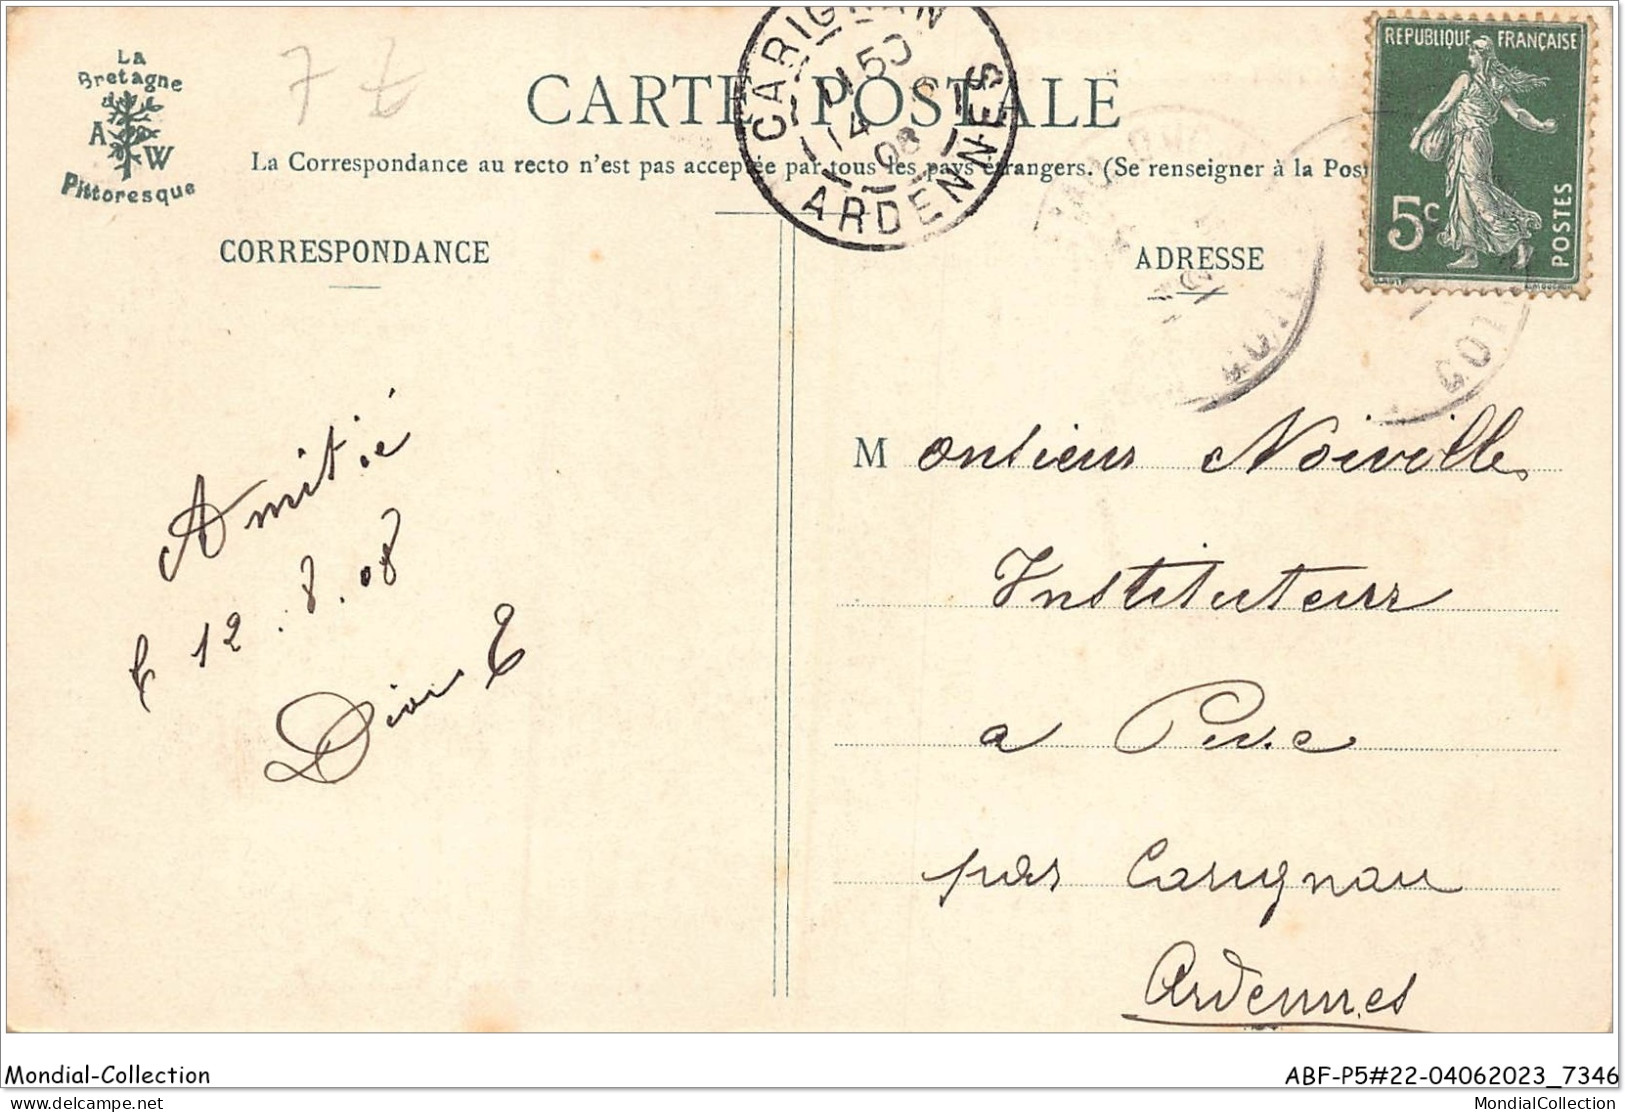 La
Bretagne
A W
Pittoresque
7
CARTE POSTALE
CARIGNAN
14
08
ARDENNES
RÉPUBLIQUE FRANÇAISE
5c
POSTES
La Correspondance au recto n'est pas acceptée par tous les pays étrangers. (Se renseigner à la Pos
CORRESPONDANCE
ADRESSE
Amitié
12.8.08
M onsieur Noiville
Instituteur
a
par Carignan
Ardennes
Mondial-Collection
ABF-P5#22-04062023_7346
delcampe.net
MondialCollection